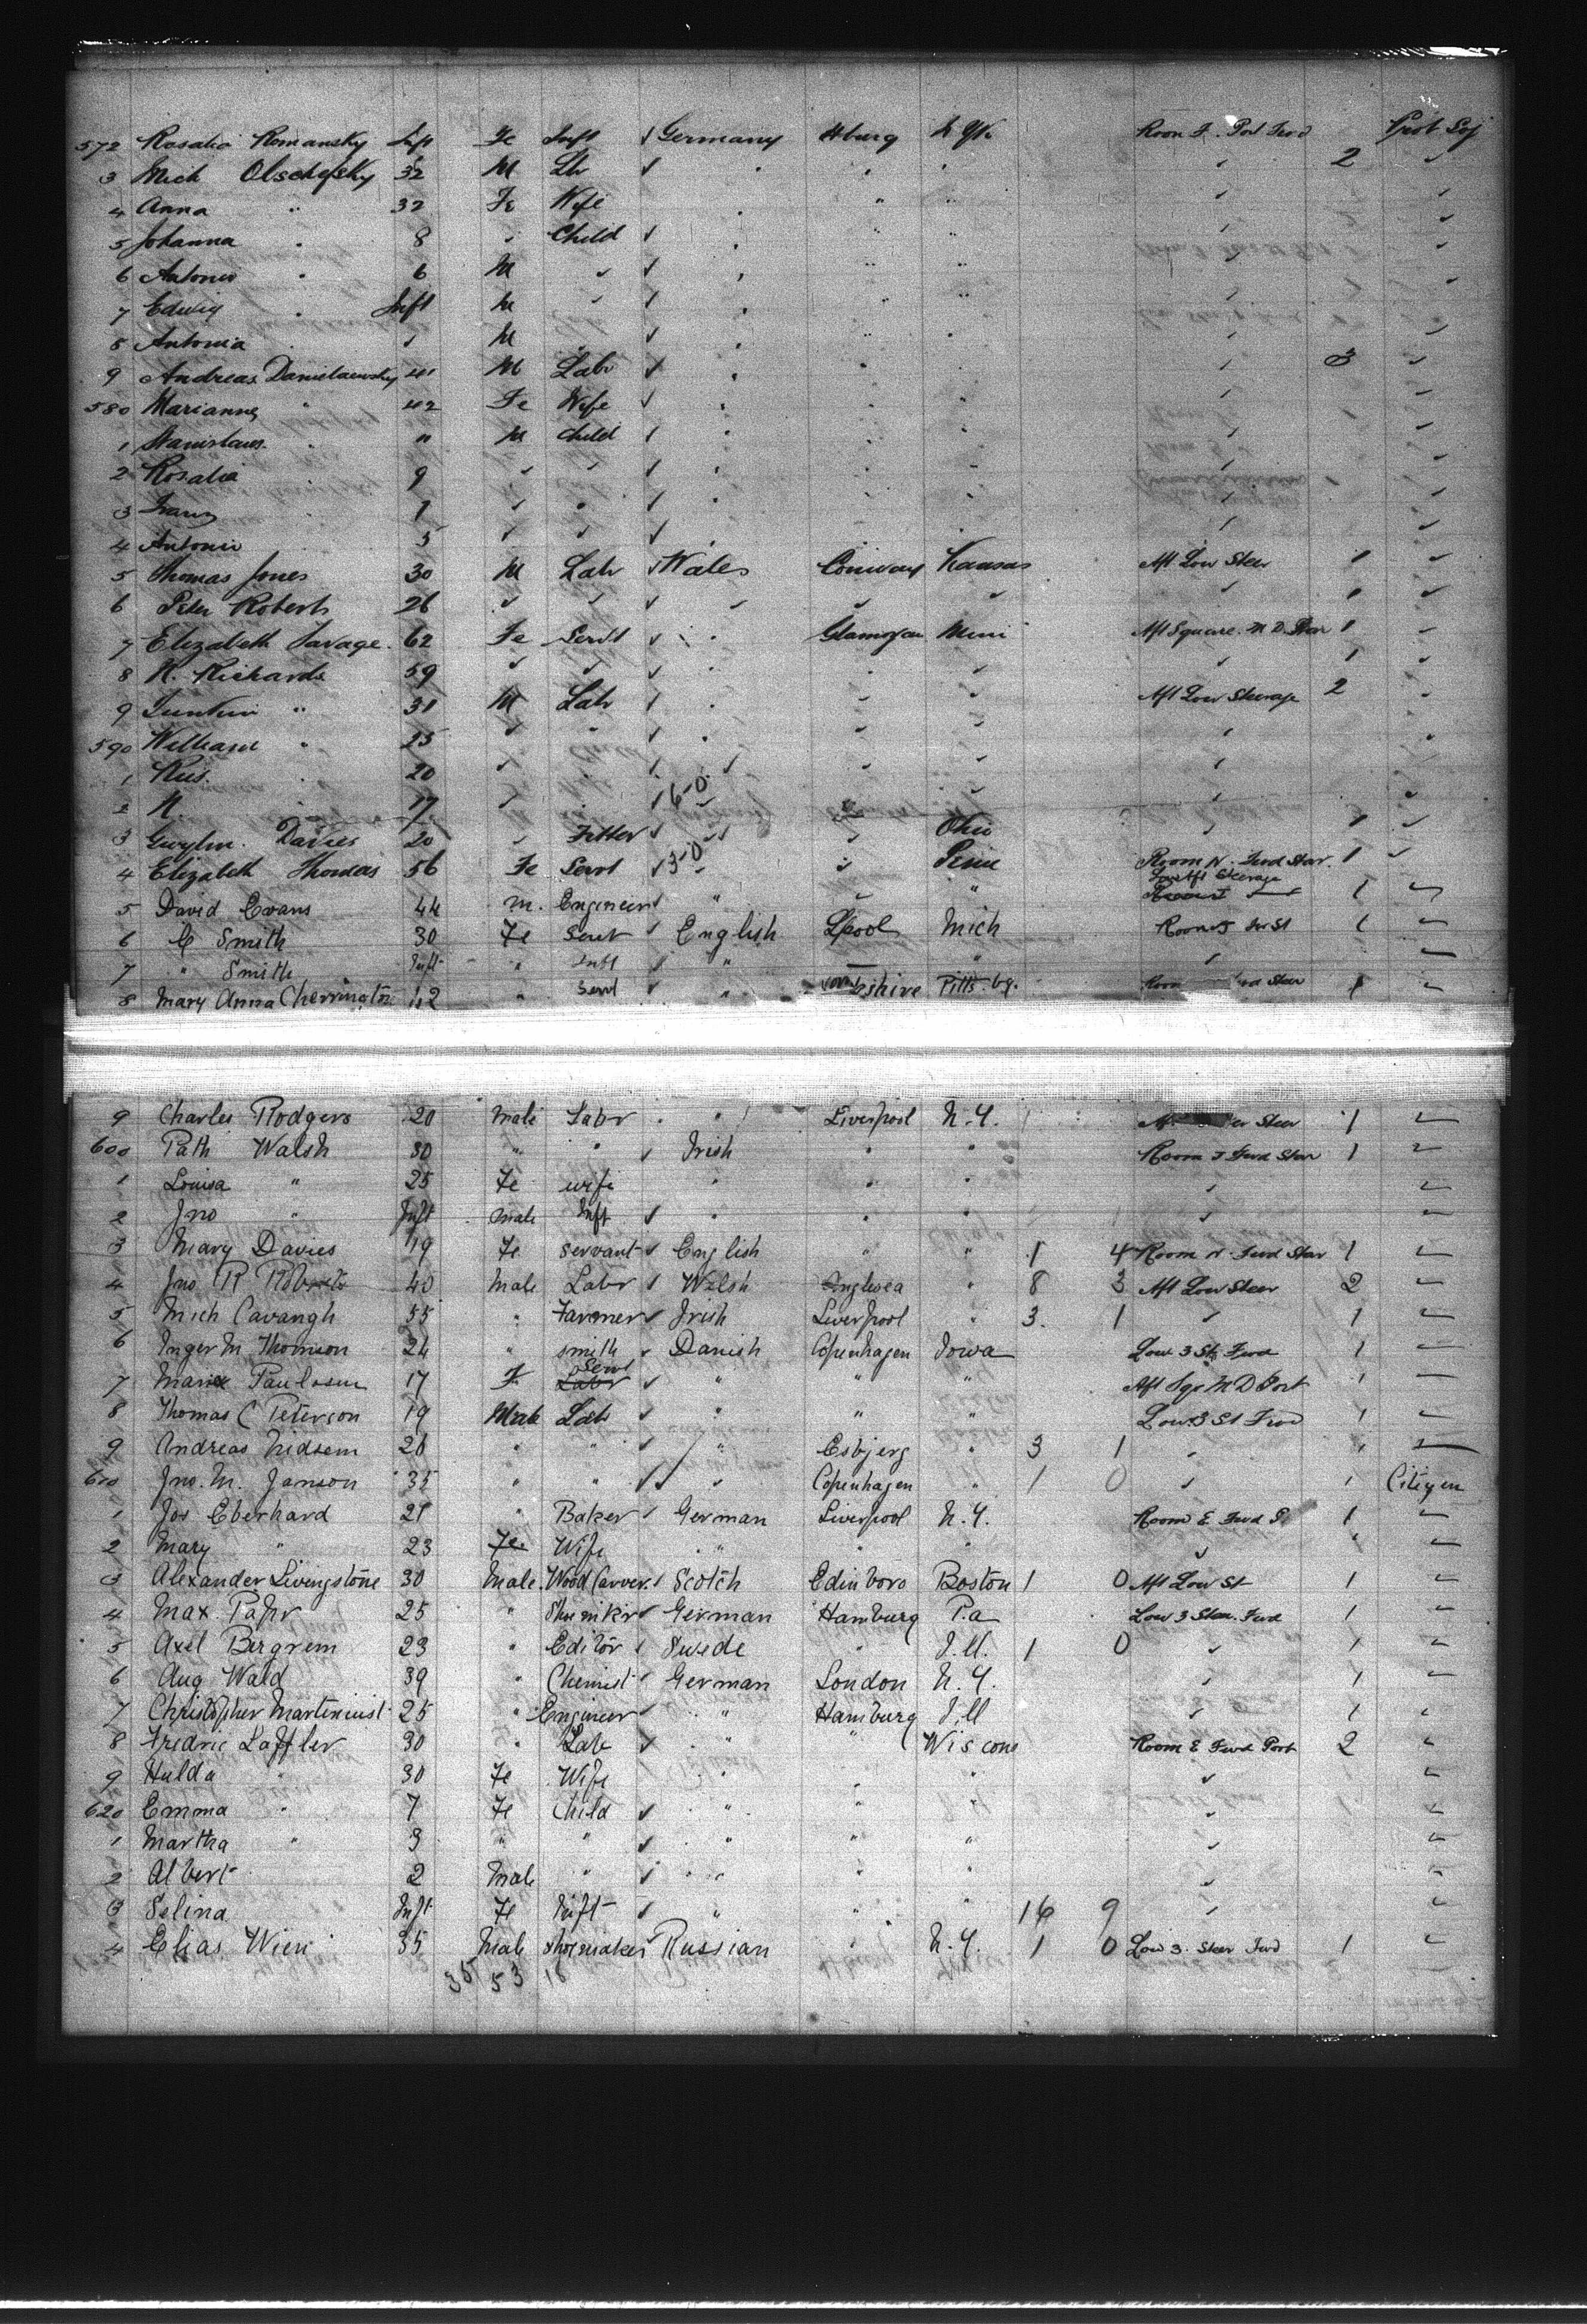 572 Rosalia Romansky Inft Fe Inft ✓ Germany Hburg N Yk Room F. Port Fwd Prot Soj
3 Mich Olschefsky 32 M Lbr ✓ " " " ✓ 2 ✓
4 Anna " 32 Fe Wife " " " ✓ ✓
5 Johanna " 8 " Child ✓ " " " ✓ ✓
6 Antonio " 6 M " ✓ " " " ✓ ✓
7 Edwig " Inft M " ✓ " " " ✓ ✓
8 Antonia " " M " ✓ " " " ✓ ✓
9 Andreas 41 M Labr ✓ " " " ✓ 3 ✓
580 Marianna " 42 Fe Wife ✓ " " " ✓ ✓
1 Stanislaus " 11 M Child ✓ " " " ✓ ✓
2 Rosalia 9 " " ✓ " " " ✓ ✓
3 Franz " " ✓ " " " ✓ ✓
4 Antonio 5 " " ✓ ✓ ✓
5 Thomas Jones 30 M Labr ✓ Wales Conway Kansas Aft Low Steer 1 ✓
6 Peter Roberts 26 " " ✓ " " " " 1 ✓
7 Elizabeth Savage 62 Fe Servt ✓ " Glamorgan Aft Square M D Star 1 ✓
8 H. Richards 59 " " ✓ " " " " 1 ✓
9 " 31 M Labr ✓ " " " Aft Low Steerage 2 ✓
590 William " 25 " " ✓ " " " "
1 " 20 " " ✓ " " " "
2 N. 17 " ✓ 6-0 " " " "
3 Gwylm. Davies 20 " Fitter ✓ " " Ohio " 1 ✓
4 Elizabeth Thomas 56 Fe Servt ✓ 3-0 " Penn Room N. Fwd Star. 1 ✓
5 David Evans 44 m. Engineer ✓ " " " Low Aft Steerage 1 ✓
6 C Smith 30 Fe Servt ✓ English Lpool Mich 1 ✓
7 " Smith Inft " Inft ✓ " " " ✓
8 Mary Anna Cherrington 42 " Servt ✓ " Pitts.bg. Room 1 ✓
9 Charles Rodgers 20 Male Labr " " Liverpool N.Y. Steer 1 ✓
600 Path Walsh 30 " " ✓ Irish " " Room J Fwd Star 1 ✓
1 Louisa " 25 Fe wife " " " " ✓
2 Jno " Inft male Inft ✓ " " ✓
3 Mary Davies 19 Fe Servant ✓ English " " 1 4 Room N. Fwd Star 1 ✓
4 Jno R Roberts 40 Male Labr ✓ Welsh Anglesea " 8 3 Aft Low Steer 2 ✓
5 Mich Cavangh 55 " Farmer ✓ Irish Liverpool " 3. 1 " 1 ✓
6 Inger M Thomson 24 " smith ✓ Danish Copenhagen Iowa Low 3 St Fwd 1 ✓
7 Marie Paulosen 17 F Labr Servt ✓ " " " Aft Sqr M D Port 1 ✓
8 Thomas C Peterson 19 Male Lab ✓ " " " Low 3 St Fwd 1 ✓
9 Andreas Nidsem 26 " " ✓ " Esbjerg " 3 1 " 1 ✓
600 Jno. M. Janson 35 " " ✓ " Copenhagen " 1 0 " 1 Citizen
1 Jos Eberhard 21 " Baker ✓ German Liverpool N.Y. Room E Fwd 1 ✓
2 Mary " 23 Fe. Wife " " " " " ✓
3 Alexander Livingstone 30 Male Wood Carver ✓ Scotch Edinboro Boston 1 0 Aft Low St 1 ✓
4 Max Pahr 25 " Shumkr ✓ German Hamburg P.a Low 3 Stee. Fwd 1 ✓
5 Axel Bergrem 23 " Editor ✓ Swede " Ill. 1 0 " 1 ✓
6 Aug Wald 39 " Chemist ✓ German London N.Y. " 1 ✓
7 Christopher 25 " Engineer ✓ " Hamburg Ill " 1 ✓
8 Fredric Laffler 30 " Lab ✓ " " Wiscons Room E Fwd Port 2 ✓
9 Hulda " 30 Fe Wife " " " " ✓
620 Emma " 7 Fe Child ✓ " " " " ✓
1 Martha " 3 " " ✓ " " " " ✓
2 Albert 2 Male " ✓ " " " ✓
3 Selina Inft Fe Inft ✓ " " " 16 9 " ✓
4 Elias Wien 35 Male Shoemaker Russian " N.Y. 1 0 Low 3. Steer Fwd 1 ✓
35 53 18